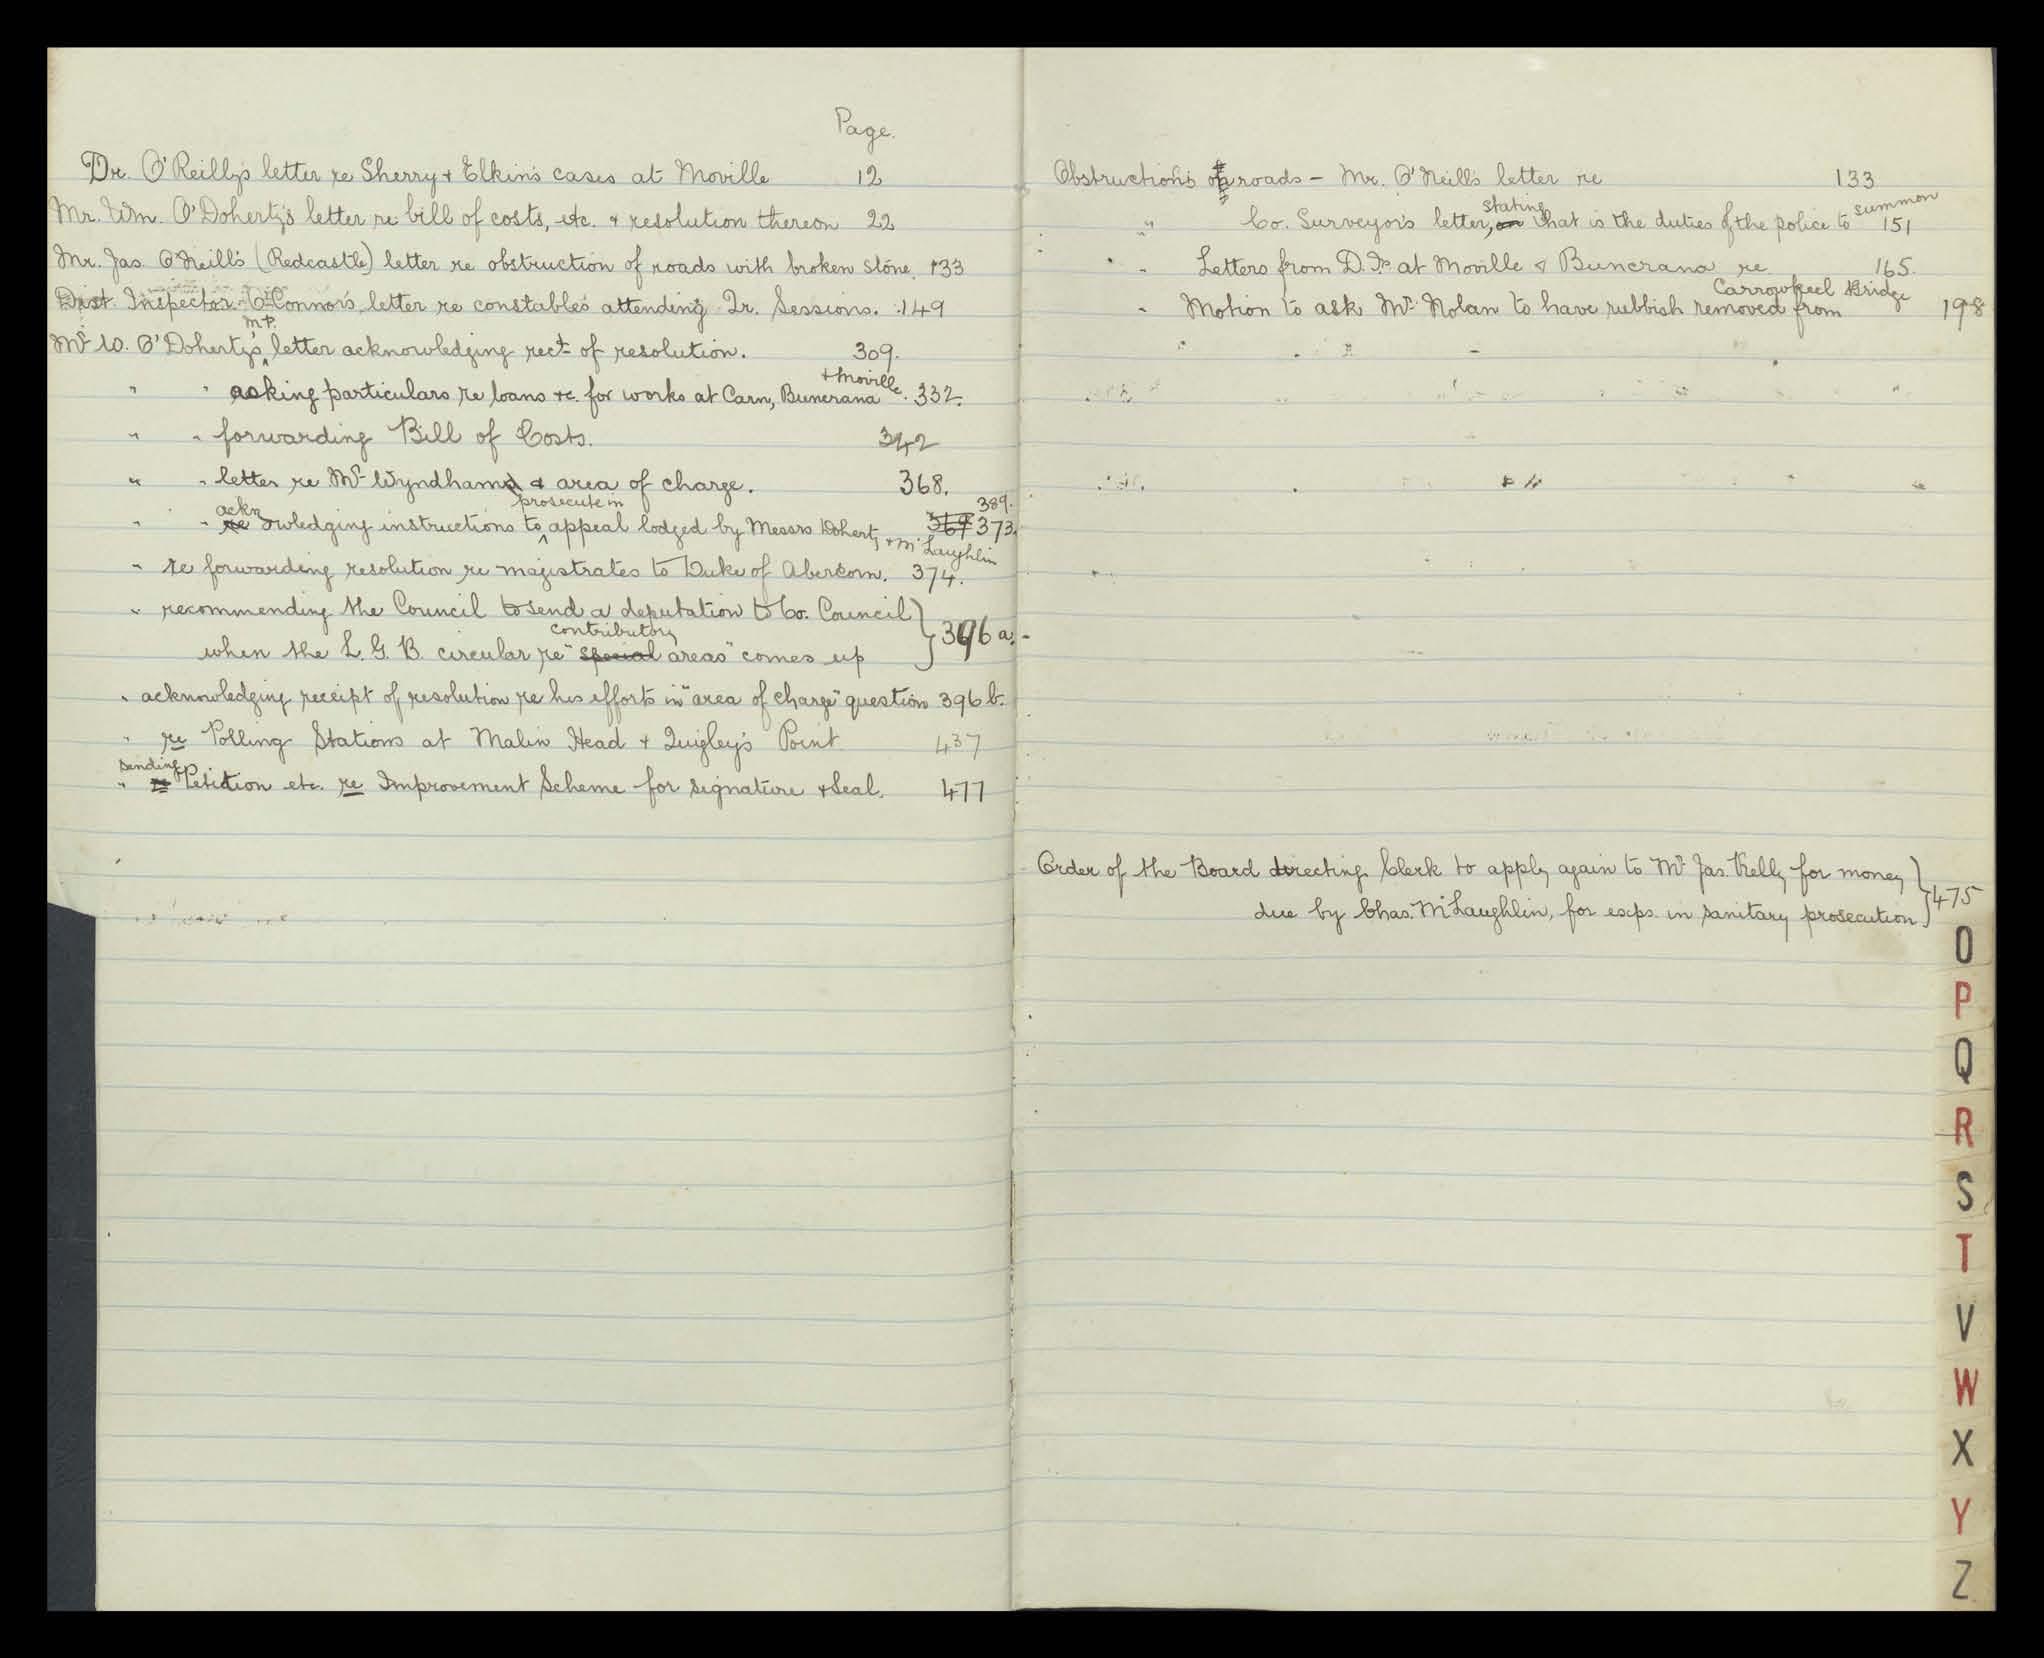 Page.
Dr. O'Reilly's letter re Sherry & Elkin's cases at Moville 12
Mr. Wm. O'Doherty's letter re bill of costs, etc. & resolution thereon 22
Mr. Jas. O'Neill's (Redcastle) letter re obstruction of roads with broken stone. 133
Dist. Inspector O'Connor's letter re constables attending Qr. Sessions. 149
Mr W. O'Doherty's M.P. letter acknowledging rect of resolution. 309.
" " asking particulars re loans &c. for works at Carn, Buncrana & Moville. 332.
" " forwarding Bill of Costs. 342
" " letter re Mr Wyndham & area of charge. 368.
" " acknowledging instructions to prosecute in appeal lodged by Messrs Doherty & McLaughlin 369 373. 389.
" re forwarding resolution re magistrates to Duke of Abercorn. 374.
" recommending the Council to send a deputation to Co. Council
when the L. G. B. circular re "special contributory areas" comes up 396 a.
" acknowledging receipt of resolution re his efforts in "area of charge" question 396 b.
" re Polling Stations at Malin Head & Quigley's Point 437
" re sending Petition etc. re Improvement Scheme for signature & Seal. 477
Obstructions on roads - Mr. O'Neill's letter re 133
" Co. Surveyor's letter, on stating that is the duties of the police to summon 151
" Letters from D. Is at Moville & Buncrana re 165.
" Motion to ask Mr. Nolan to have rubbish removed from Carrowkeel Bridge 198
Order of the Board directing Clerk to apply again to Mr Jas. Kelly for money
due by Chas. McLaughlin, for exps. in sanitary prosecution 475
O
P
Q
R
S
T
V
W
X
Y
Z